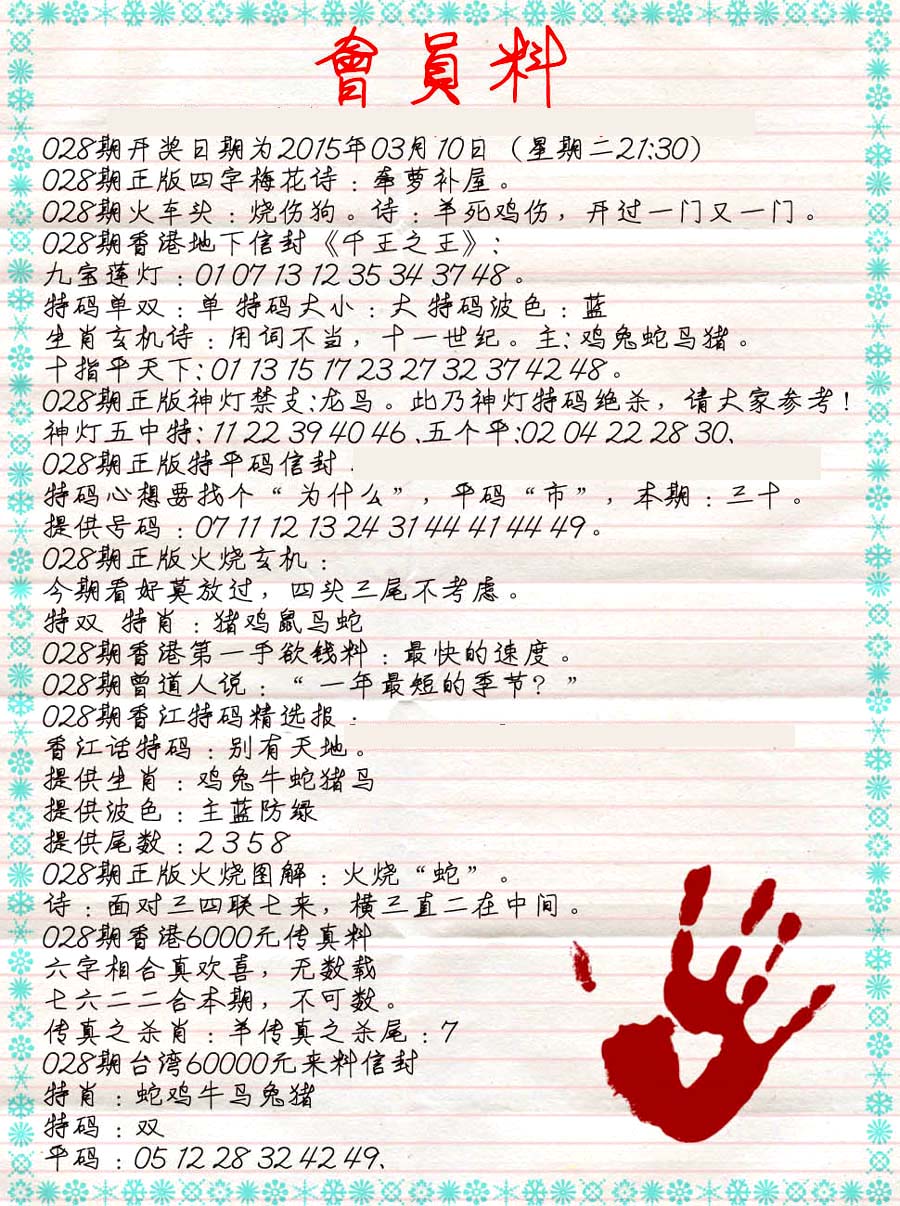 會員料
028期开奖日期为2015年03月10日（星期二21:30）
028期正版四字梅花诗：牵萝补屋。
028期火车头：烧伤狗。诗：羊死鸡伤，开过一门又一门。
028期香港地下信封《千王之王》：
九宝莲灯：01 07 13 12 35 34 37 48。
特码单双：单 特码大小：大 特码波色：蓝
生肖玄机诗：用词不当，十一世纪。主：鸡兔蛇马猪。
十指平天下：01 13 15 17 23 27 32 37 42 48。
028期正版神灯禁支:龙马。此乃神灯特码绝杀，请大家参考！
神灯五中特: 11 22 39 40 46 、五个平:02 04 22 28 30、
028期正版特平码信封．
特码心想要找个“为什么”，平码“市”，本期：三十。
提供号码：07 11 12 13 24 31 44 41 44 49。
028期正版火烧玄机：
今期看好莫放过，四头三尾不考虑。
特双 特肖：猪鸡鼠马蛇
028期香港第一手欲钱料：最快的速度。
028期曾道人说：“一年最短的季节？”
028期香江特码精选报：
香江话特码：别有天地。
提供生肖：鸡兔牛蛇猪马
提供波色：主蓝防绿
提供尾数：2 3 5 8
028期正版火烧图解：火烧“蛇”。
诗：面对三四联七来，横三直二在中间。
028期香港6000元传真料
六字相合真欢喜，无数载
七六二二合本期，不可数。
传真之杀肖：羊传真之杀尾：7
028期台湾60000元来料信封
特肖：蛇鸡牛马兔猪
特码：双
平码：05 12 28 32 42 49、